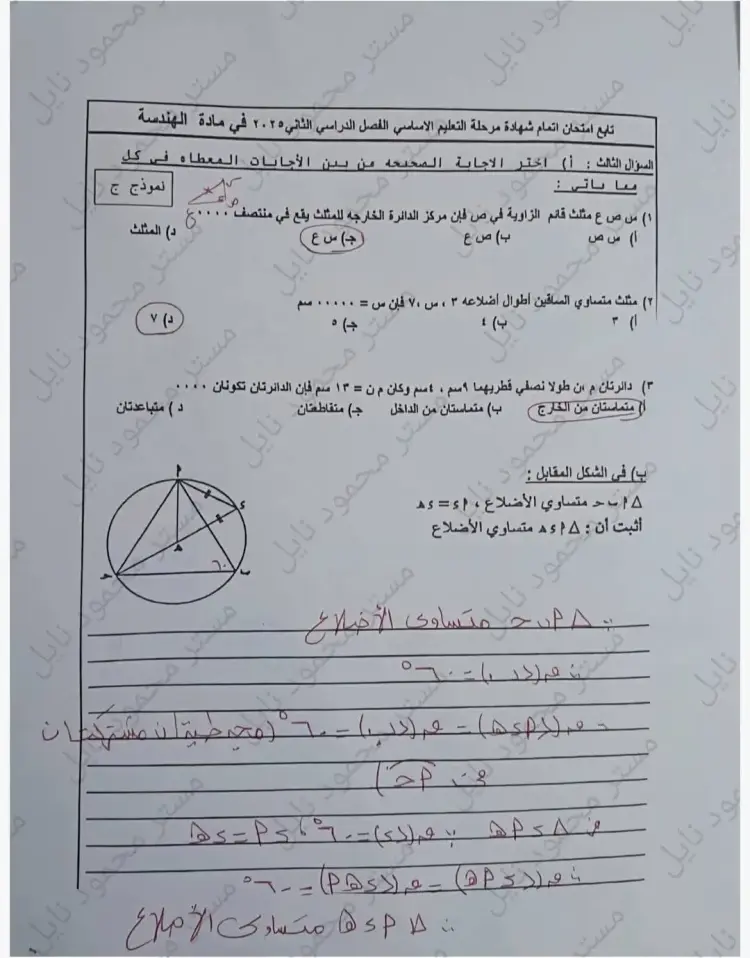 تابع امتحان اتمام شهادة مرحلة التعليم الاساسي الفصل الدراسي الثاني ٢٠٢٥ في مادة الهندسة
السؤال الثالث : أ) اختر الاجابة الصحيحه من بين الأجابات المعطاه فى كل
مما يأتى :
نموذج ج
١) س ص ع مثلث قائم الزاوية في ص فإن مركز الدائرة الخارجه للمثلث يقع في منتصف ٠٠٠٠
أ) س ص ب) ص ع جـ) س ع د) المثلث
٢) مثلث متساوي الساقين أطوال أضلاعه ٣ ، س ، ٧ فإن س = ٠٠٠٠٠ سم
أ) ٣ ب) ٤ جـ) ٥ د) ٧
٣) دائرتان م ،ن طولا نصفي قطريهما ٩سم ، ٤سم وكان م ن = ١٣ سم فإن الدائرتان تكونان ٠٠٠٠
أ) متماستان من الخارج ب) متماستان من الداخل جـ) متقاطعتان د ) متباعدتان
ب) فى الشكل المقابل :
∆ ا ب حـ متساوي الأضلاع ، ا ء = ء هـ
أثبت أن : ∆ ا ء هـ متساوي الأضلاع
ا
ء
هـ
حـ
ب
٦٠
∵ ∆ ا ب حـ متساوى الأضلاع
∴ ق(د ب) = ٦٠°
∴ ق(د ا ء هـ) = ق(د ب) = ٦٠° (محيطيتان مشتركتان
فى ا حـ)
فى ∆ ء ا هـ ∵ ق(د ء) = ٦٠° ، ء ا = ء هـ
∴ ق(د ء ا هـ) = ق(د ء هـ ا) = ٦٠°
∴ ∆ ا ء هـ متساوى الأضلاع
مستر محمود نايل